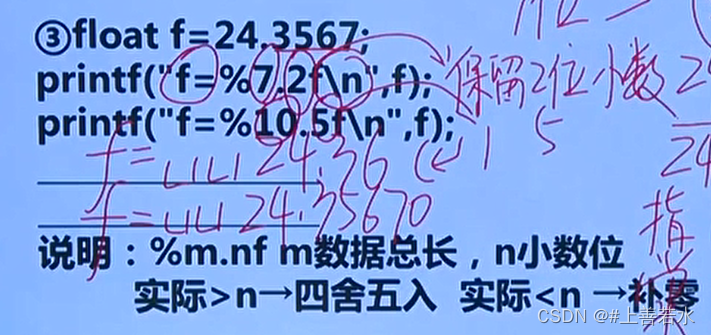 ③float f=24.3567;
printf("f=%7.2f\n",f); 保留2位小数
printf("f=%10.5f\n",f);
f=␣␣24.36
f=␣␣24.35670
说明：%m.nf m数据总长，n小数位
实际>n→四舍五入 实际<n →补零
CSDN @#上善若水